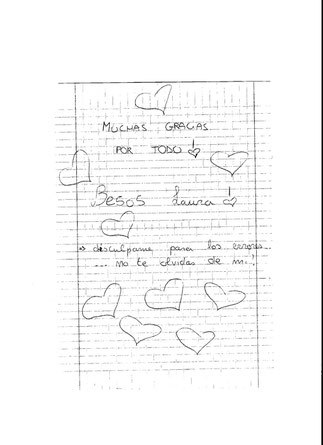 MUCHAS GRACIAS
POR TODO!
Besos Laura!
⇒ disculpame para los errores...
... no te olvidas de mi!